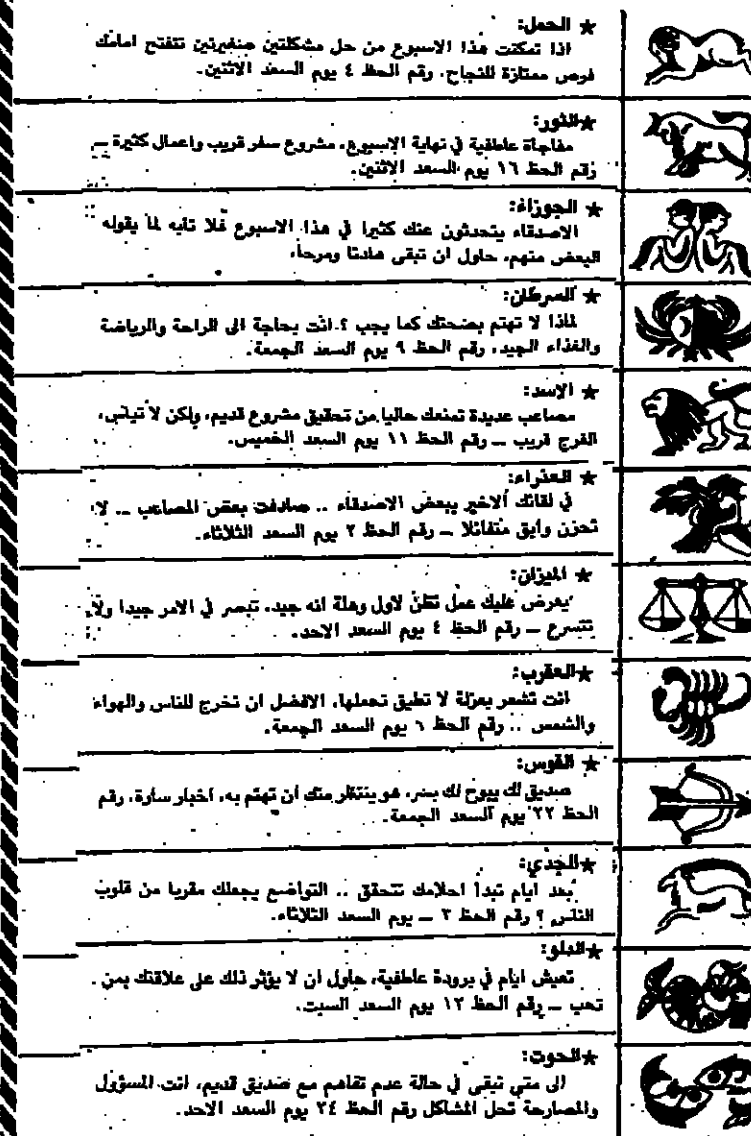 ★ الحمل:
اذا تمكنت هذا الاسبوع من حل مشكلتين صغيرتين تتفتح امامك
فرص ممتازة للنجاح. رقم الحظ ٤ يوم السعد الاثنين.
★ الثور:
مفاجأة عاطفية في نهاية الاسبوع، مشروع سفر قريب واعمال كثيرة ــ
رقم الحظ ١٦ يوم السعد الاثنين.
★ الجوزاء:
الاصدقاء يتحدثون عنك كثيرا في هذا الاسبوع فلا تأبه لما يقوله
البعض منهم. حاول ان تبقى هادئا ومرحا.
★ السرطان:
لماذا لا تهتم بصحتك كما يجب ؟ انت بحاجة الى الراحة والرياضة
والغذاء الجيد. رقم الحظ ٩ يوم السعد الجمعة.
★ الاسد:
مصاعب عديدة تمنعك حاليا من تحقيق مشروع قديم، ولكن لا تيأس،
الفرج قريب ــ رقم الحظ ١١ يوم السعد الخميس.
★ العذراء:
في لقائك الاخير ببعض الاصدقاء .. صادفت بعض المصاعب .. لا
تحزن وابق متفائلا ــ رقم الحظ ٢ يوم السعد الثلاثاء.
★ الميزان:
يعرض عليك عمل تظن لاول وهلة انه جيد. تبصر في الامر جيدا ولا
تتسرع ــ رقم الحظ ٤ يوم السعد الاحد.
★ العقرب:
انت تشعر بعزلة لا تطيق تحملها. الافضل ان تخرج للناس والهواء
والشمس .. رقم الحظ ٦ يوم السعد الجمعة.
★ القوس:
صديق لك يبوح لك بسر. هو ينتظر منك ان تهتم به. اخبار سارة. رقم
الحظ ٢٢ يوم السعد الجمعة.
★ الجدي:
بعد ايام تبدأ احلامك تتحقق .. التواضع يجعلك مقربا من قلوب
الناس ؟ رقم الحظ ٣ ــ يوم السعد الثلاثاء.
★ الدلو:
تعيش ايام في برودة عاطفية، حاول ان لا يؤثر ذلك على علاقتك بمن
تحب ــ رقم الحظ ١٢ يوم السعد السبت.
★ الحوت:
الى متى تبقى في حالة عدم تفاهم مع صديق قديم، انت المسؤول
والمصارحة تحل المشاكل رقم الحظ ٢٤ يوم السعد الاحد.